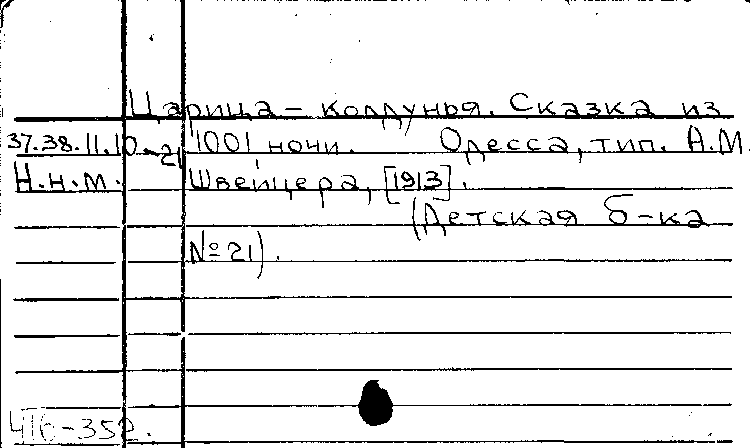 Царица - колдунья. Сказка из
37.38.11.10-21 1001 ночи. Одесса, тип. А.М.
Н.н.м. Швейцера, [1913].
(Детская б-ка
№ 21).
416-352.